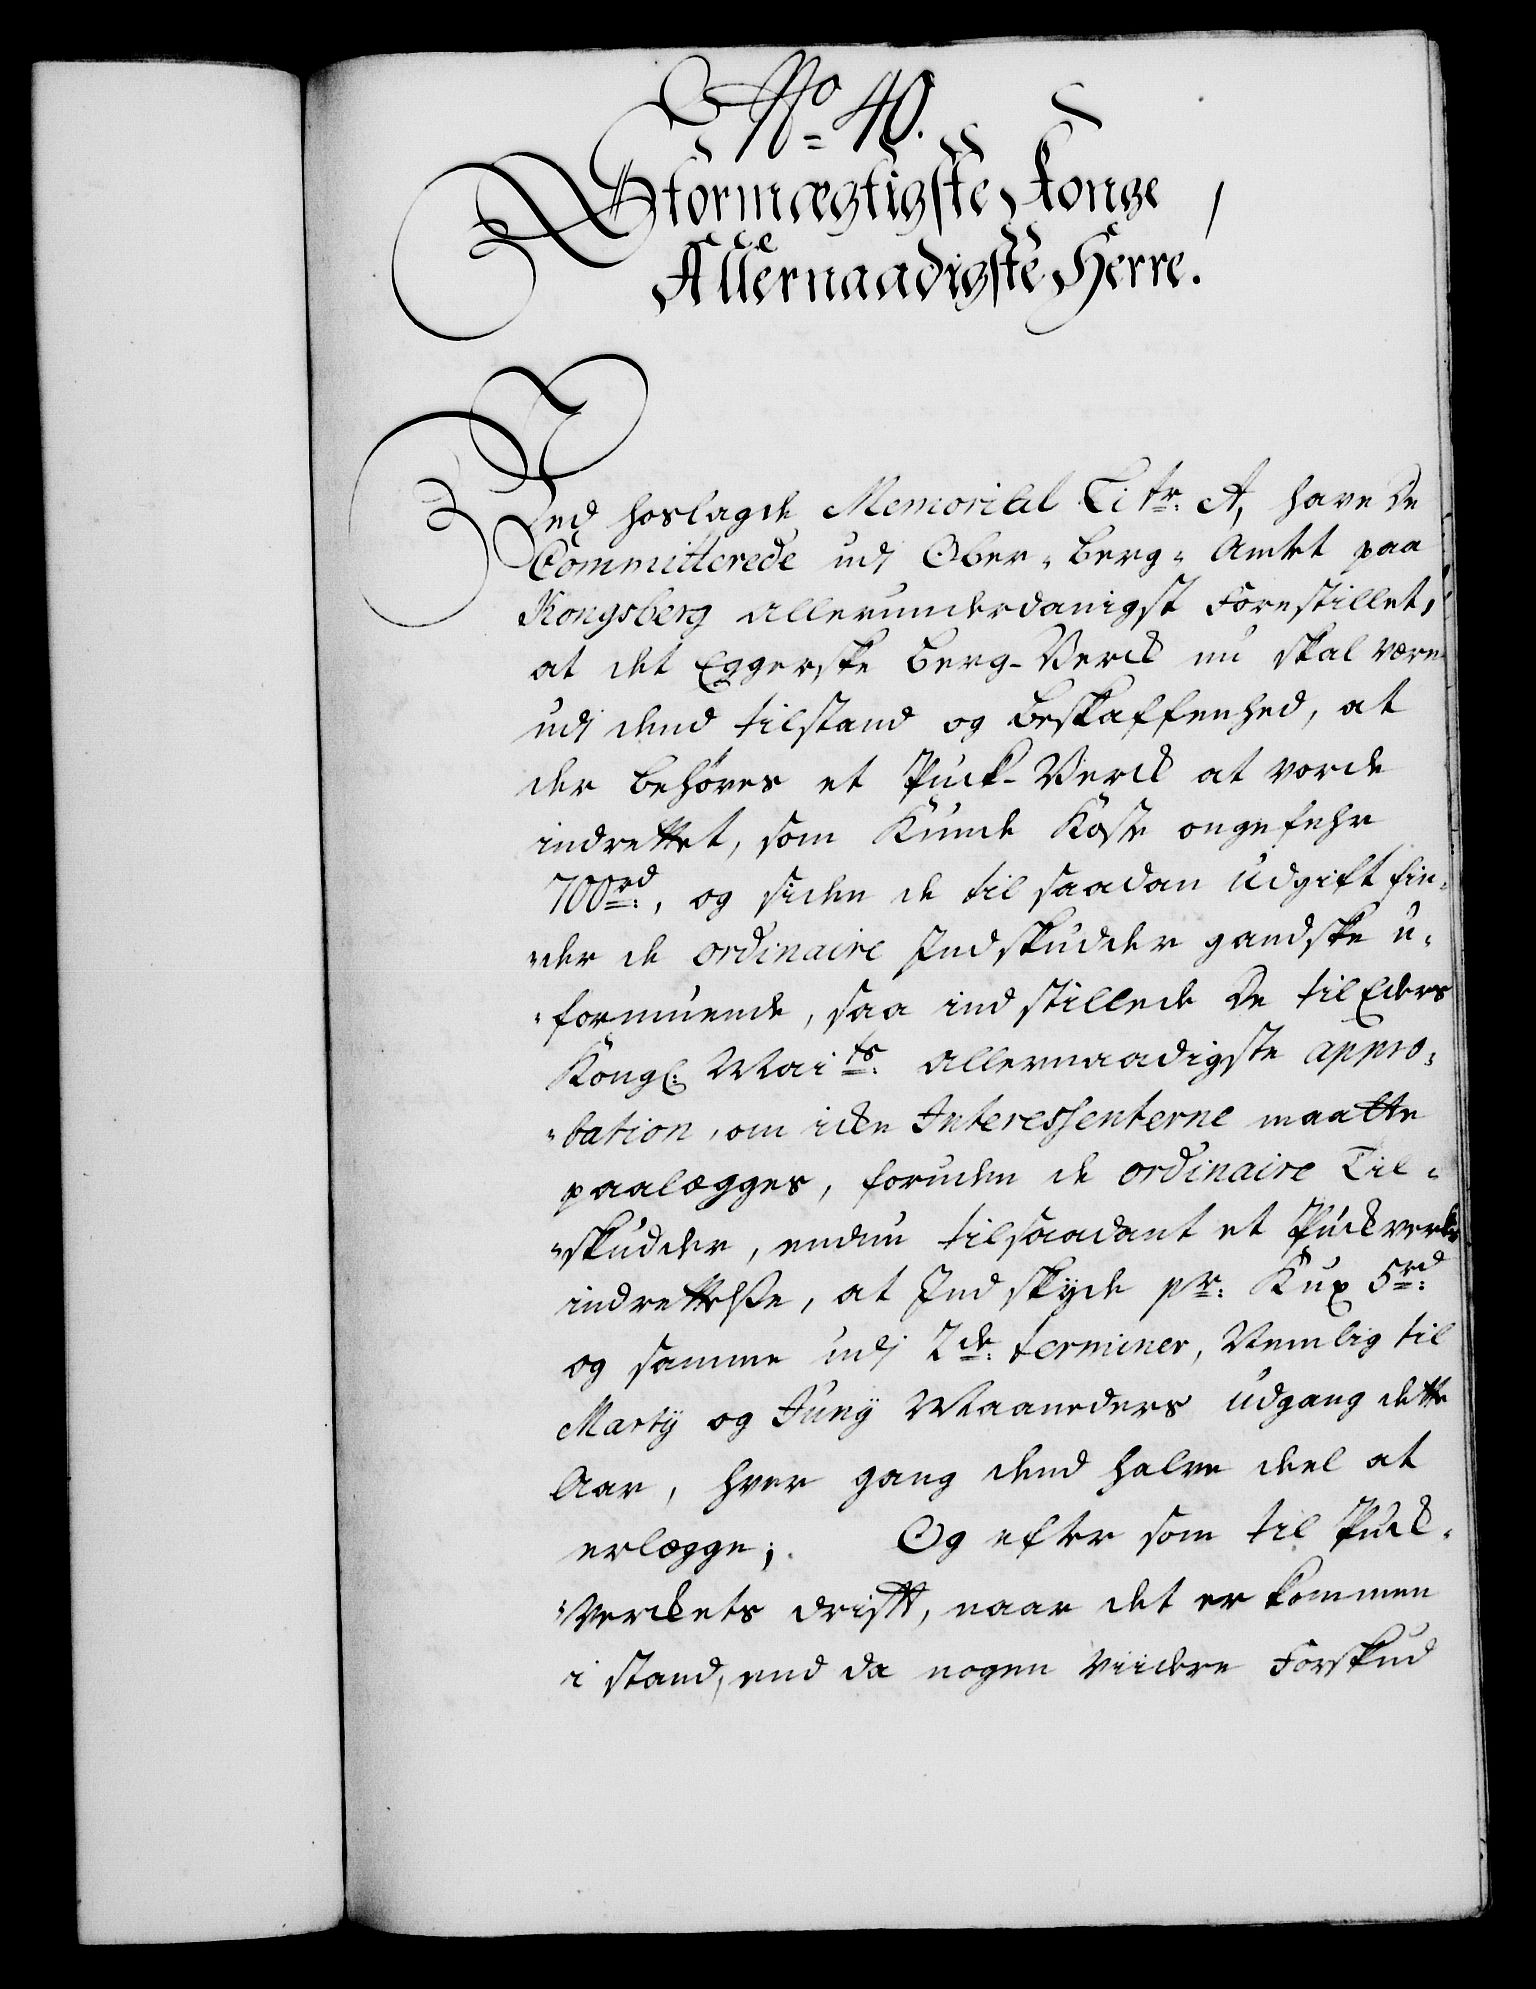 No 40.
Stormægtigste Konge
Allernaadigste Herre.
Ved hoslagde Memorial Litr. A, have De
Committerede udj Ober-Berg-Amtet paa
Kongsberg allerunderdanigst Forestillet,
at det Eggerske Berg-Verck nu skal være
udj dend tilstand og Beskaffenhed, at
der behøves et Puck-Verck at vorde
indrettet, som Kunde Koste ongefehr
700rd., og siden de til saadan Udgift fin-
der de ordinaire Indskudder gandske u-
formuende, saa indstillede De til Eders
Kongl. Maits. allernaadigste appro-
bation, om icke Interessenterne maatte
paalægges, foruden de ordinaire Til-
skudder, endnu til saadant et Puckvercks
indrettelse, at Indskyde pr. Kux 5rd.
og samme udj 2de. terminer, Nemlig til
Martij og Junij Maaneders udgang dette
Aar, hver gang dend halve deel at
erlægge; Og efter som til Puck-
Verckets drifft, naar det er kommen
i stand, end da nogen Viidere Forskud